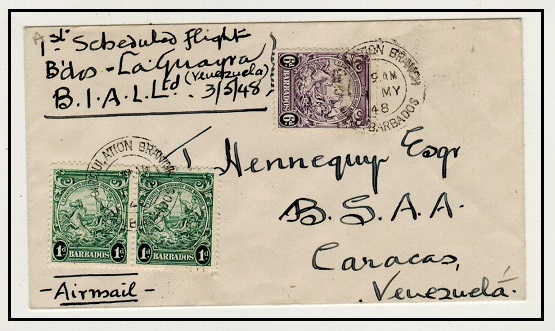 1st Scheduled flight
B'dos - La Guayra
(Venezuela)
B.I.A.L. Ltd. 3/5/48
6D 6D
BARBADOS
CULATION BRANCH
9 AM
MY
48
BARBADOS
CULATION BRANCH
1D BARBADOS 1D
1D BARBADOS 1D
Hennequy Esqr
B.S.A.A.
Caracas,
Venezuela.
- Airmail -